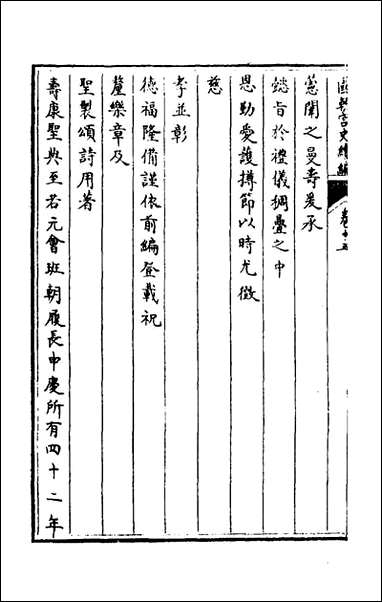 國朝宮史續編 卷十五
蕙闈之曼壽爰承
懿旨於禮儀稠疊之中
恩勤愛護撙節以時尤徵
慈
孝並彰
德福隆備謹依前編登載祝
釐樂章及
聖製頌詩用著
壽康聖典至若元會班朝履長申慶所有四十二年